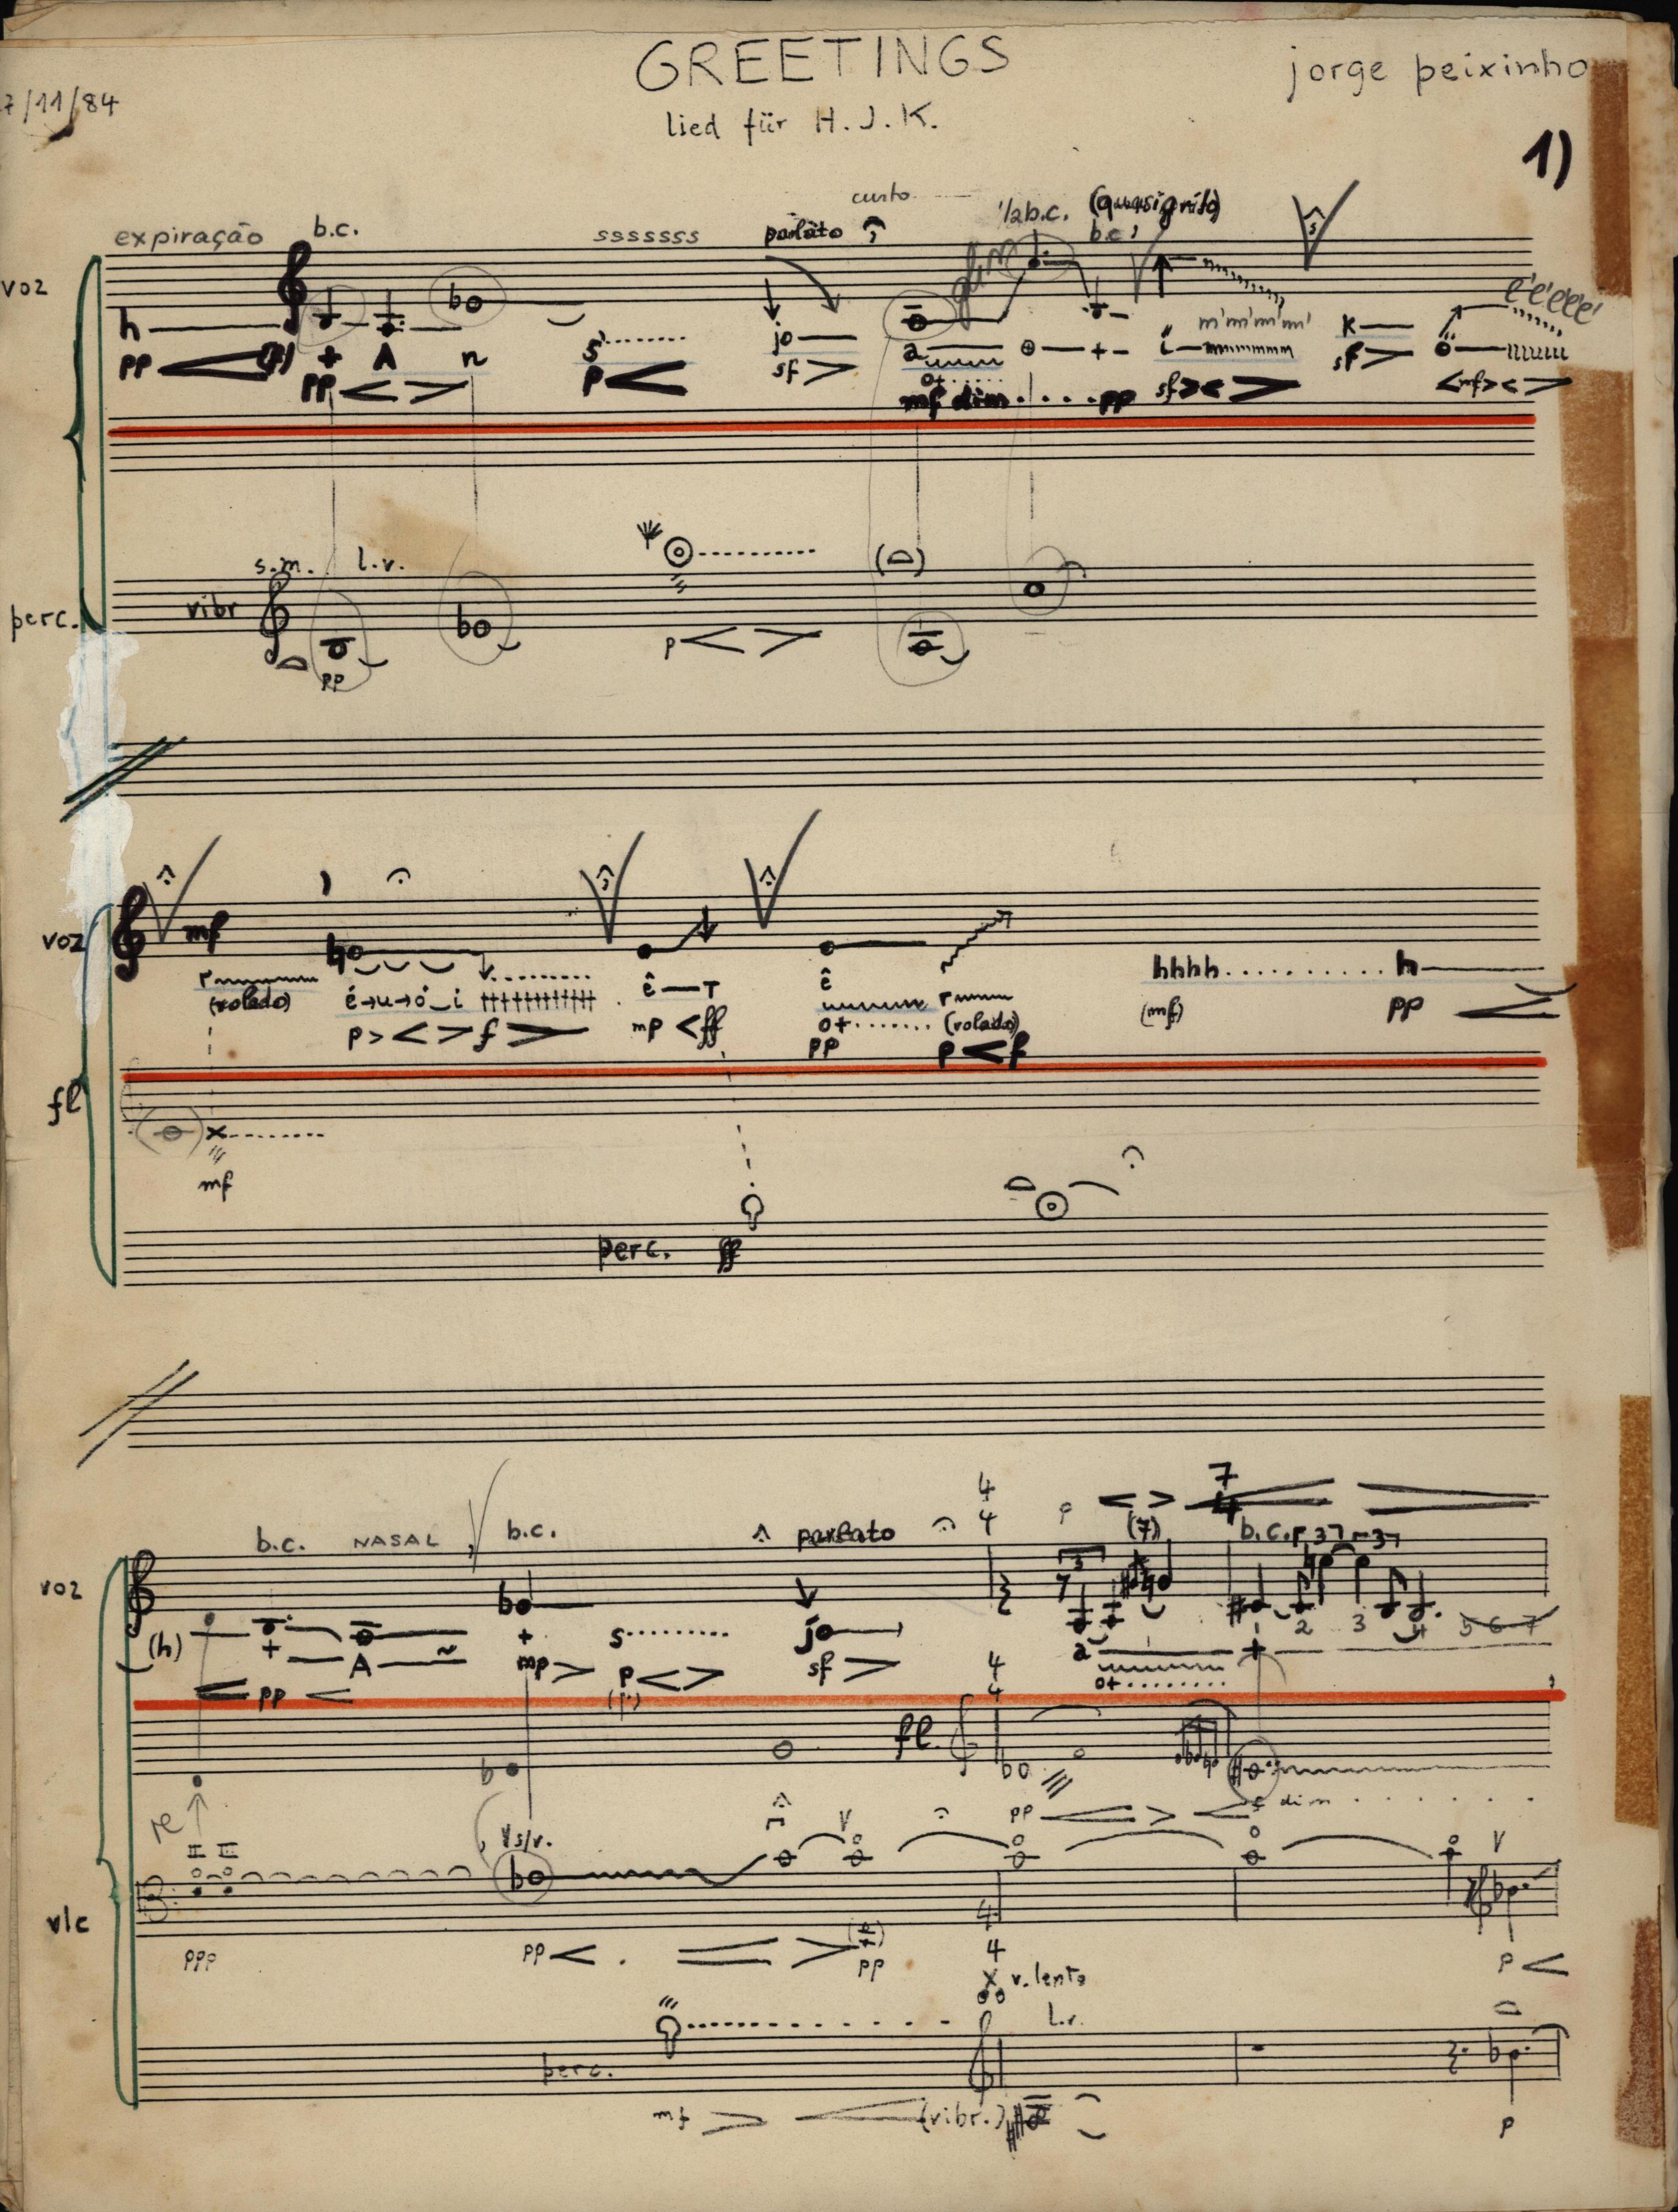 GREETINGS
jorge peixinho
7/11/84
lied für H. J. K.
1)
curto
expiração b.c. sssssss parlato ½ b.c. (quasi grito)
b.c.
voz
gliss
é'é'é'é'é'
h jo a i m'm'm'm'm' K
pp (f) + A n s sf + sf o
pp p o+ sf mf
mf dim....pp
s.m. l.v.
perc. vibr
pp p
voz mf
r ê T ê hhhh.......... h
(rolado) é→u→ó_i o+....... r (rolado) (mf) pp
p f mp ff pp p f
fl
mf
perc. ff
4
4
7
4
b.c. NASAL b.c. parlato p (7) b.c. 3 3
voz
3
(h) + A + s......... jo a + 2 3 4 5 6 7
pp mp p sf o+........
4
4
fl.
pp f dim . . . . . .
re
II III V s/v. V V
vlc
ppp pp pp p
4
4
v. lento
l.v.
perc.
mf (vibr.) p